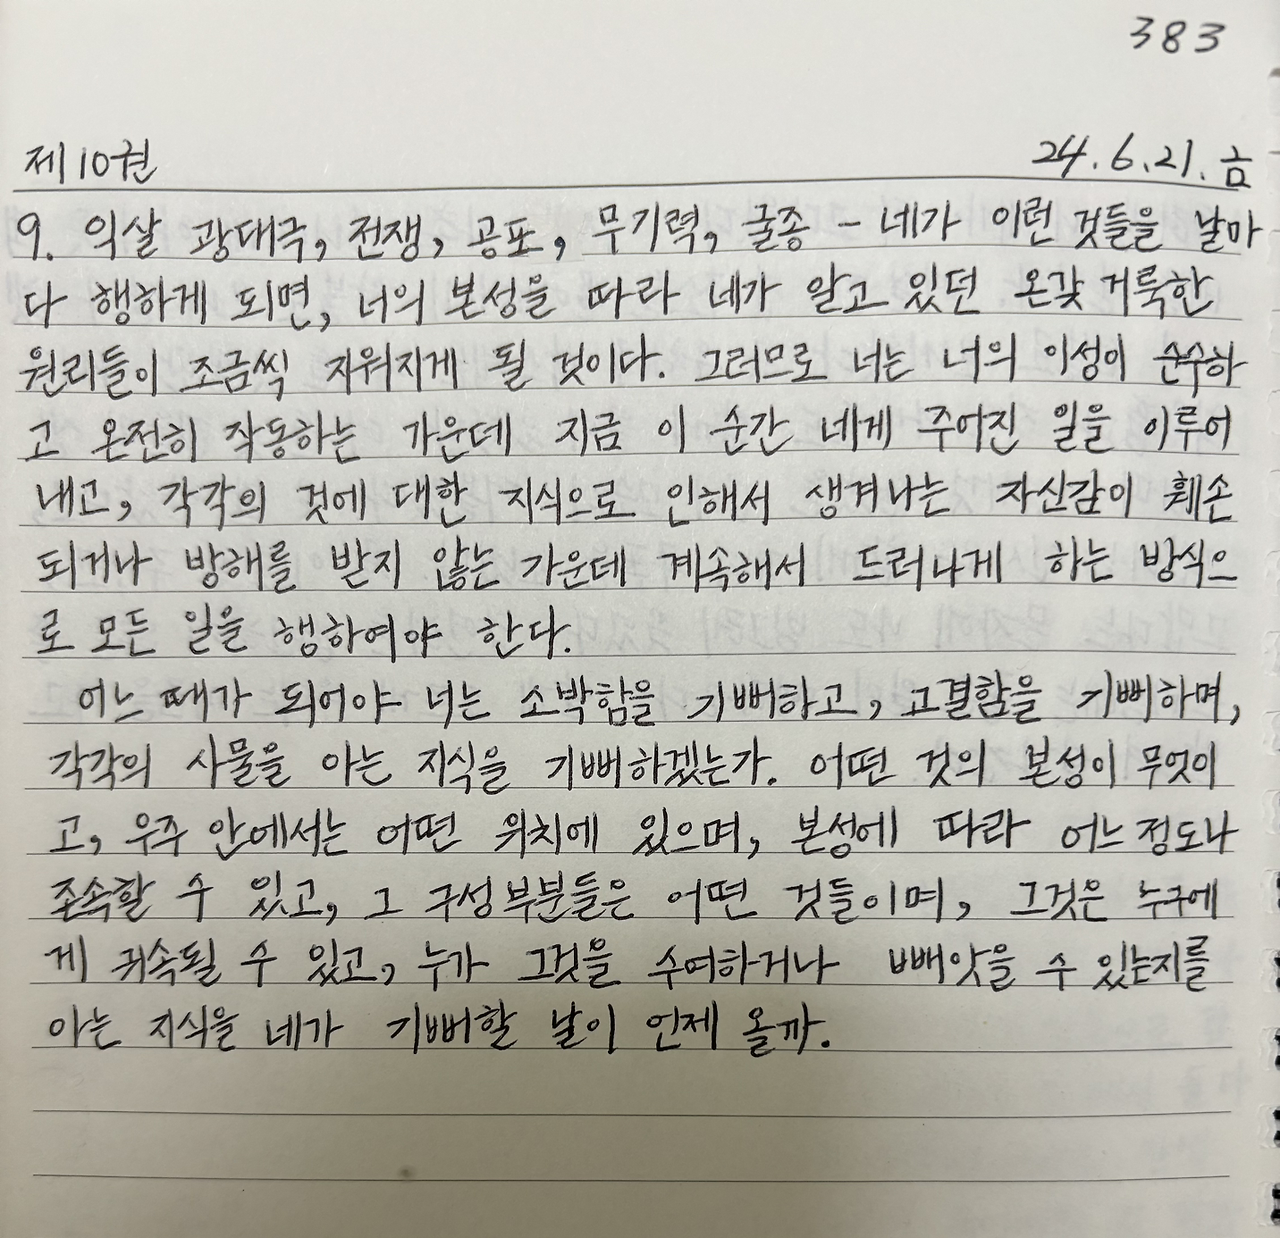 383
제10권 24.6.21.금
9. 익살 광대극, 전쟁, 공포, 무기력, 굴종 - 네가 이런 것들을 날마
다 행하게 되면, 너의 본성을 따라 네가 알고 있던 온갖 거룩한
원리들이 조금씩 지워지게 될 것이다. 그러므로 너는 너의 이성이 순수하
고 온전히 작동하는 가운데 지금 이 순간 네게 주어진 일을 이루어
내고, 각각의 것에 대한 지식으로 인해서 생겨나는 자신감이 훼손
되거나 방해를 받지 않는 가운데 계속해서 드러나게 하는 방식으
로 모든 일을 행하여야 한다.
어느 때가 되어야 너는 소박함을 기뻐하고, 고결함을 기뻐하며,
각각의 사물을 아는 지식을 기뻐하겠는가. 어떤 것의 본성이 무엇이
고, 우주 안에서는 어떤 위치에 있으며, 본성에 따라 어느 정도나
존속할 수 있고, 그 구성부분들은 어떤 것들이며, 그것은 누구에
게 귀속될 수 있고, 누가 그것을 수여하거나 빼앗을 수 있는지를
아는 지식을 네가 기뻐할 날이 언제 올까.